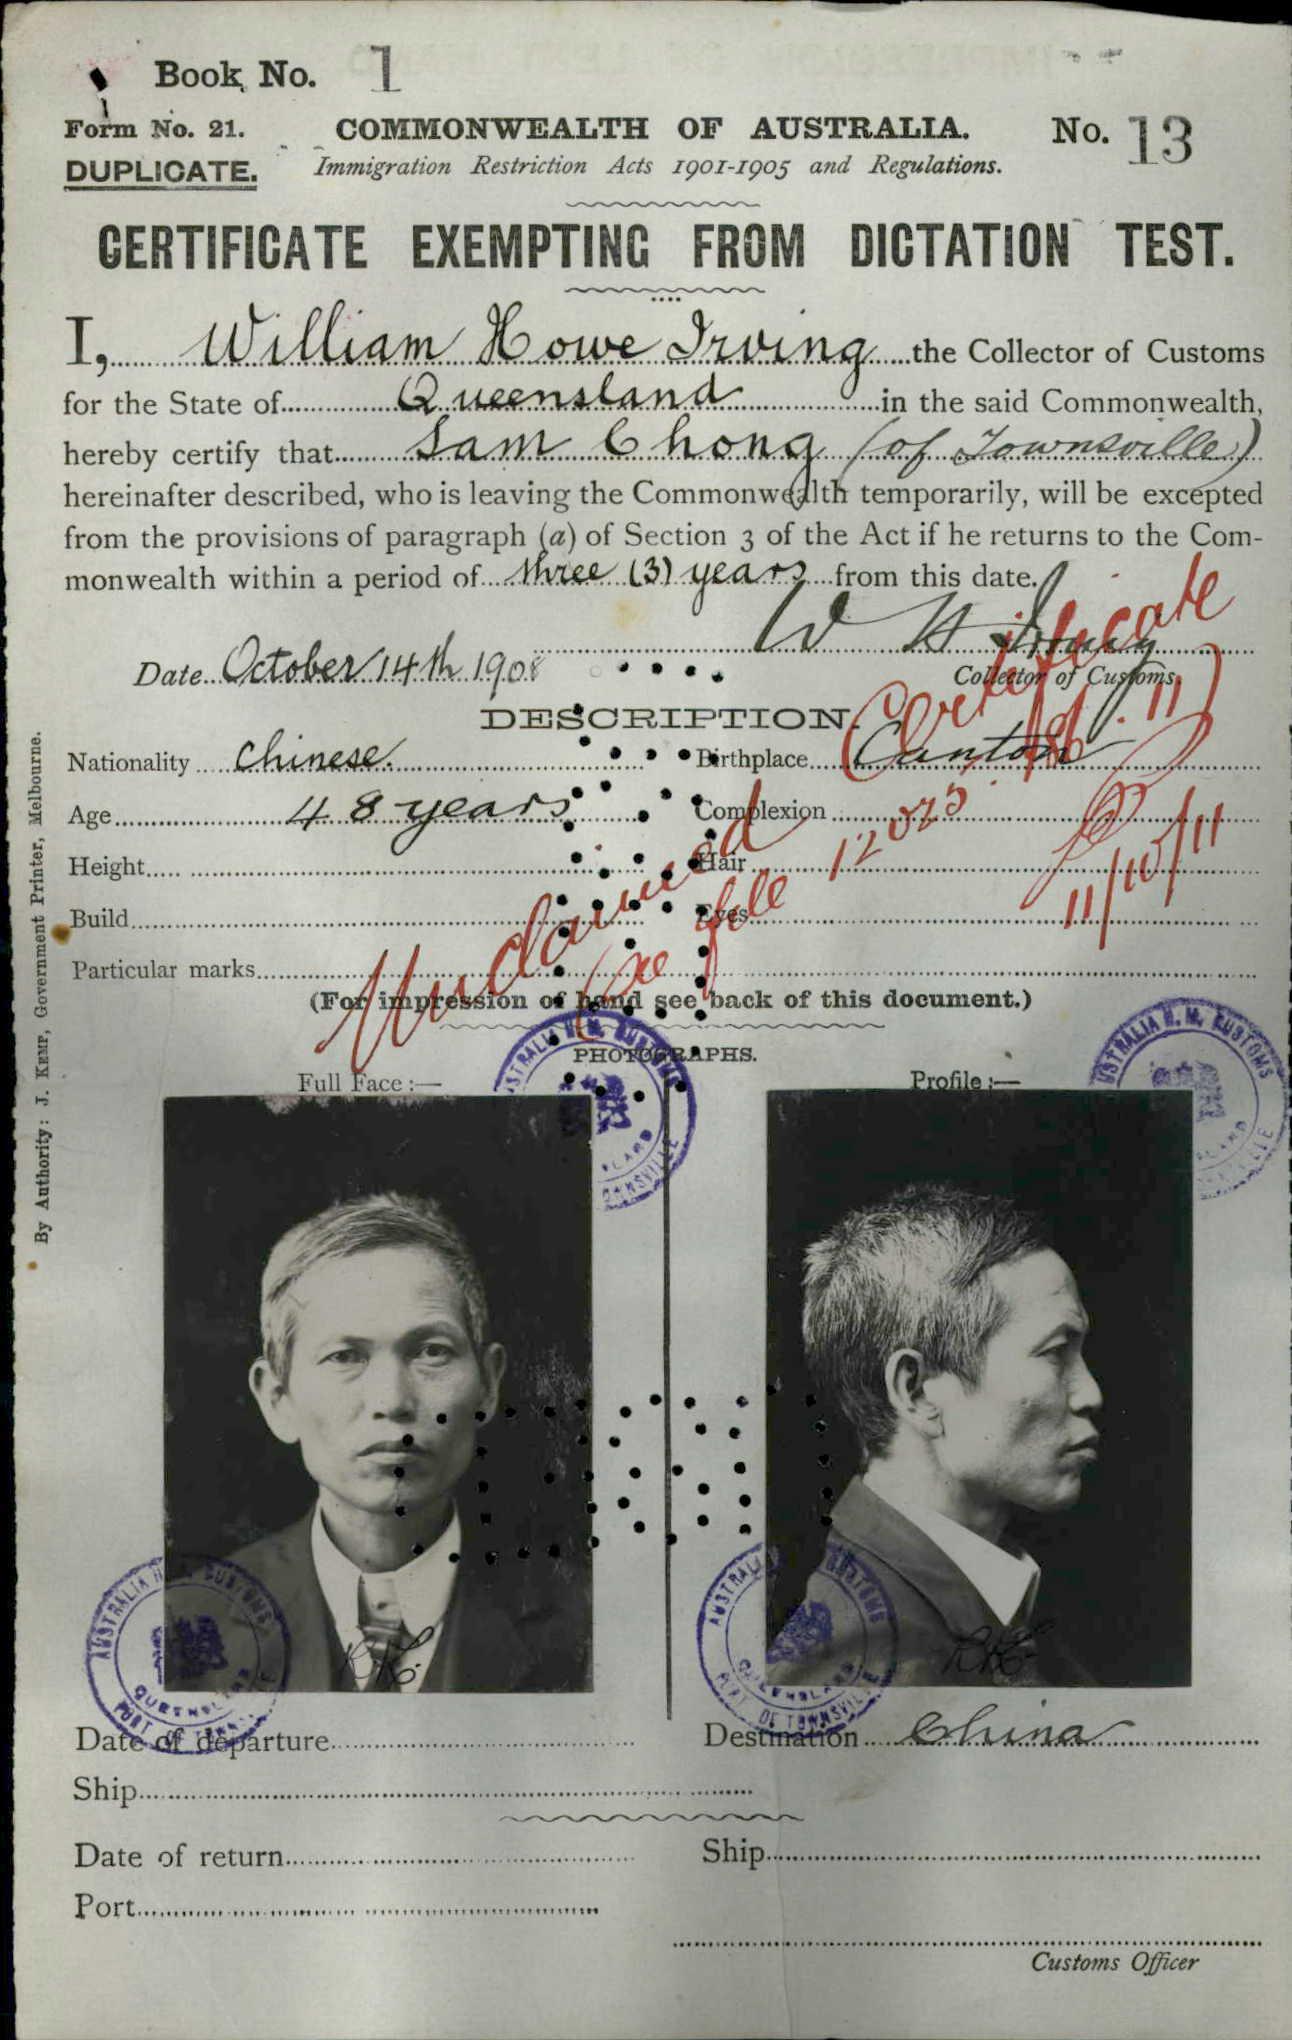 Book No. 1
Form No. 21.
DUPLICATE.
COMMONWEALTH OF AUSTRALIA.
No. 13
Immigration Restriction Acts 1901-1905 and Regulations.
CERTIFICATE EXEMPTING FROM DICTATION TEST.
I, William Howe Irving the Collector of Customs
for the State of Queensland in the said Commonwealth,
hereby certify that Sam Chong (of Townsville)
hereinafter described, who is leaving the Commonwealth temporarily, will be excepted
from the provisions of paragraph (a) of Section 3 of the Act if he returns to the Com-
monwealth within a period of three (3) years from this date.
W H Irving
Date October 14th 1908
Collector of Customs.
DESCRIPTION.
Nationality Chinese. Birthplace Canton
Age 48 years Complexion
Height Hair
Build Eyes
Particular marks
(Certificate
Unclaimed
See file 12023
11)
11/10/11
(For impression of hand see back of this document.)
PHOTOGRAPHS.
Full Face:— Profile:—
AUSTRALIA H. M. CUSTOMS
AUSTRALIA H. M. CUSTOMS
AUSTRALIA H. M. CUSTOMS QUEENSLAND PORT OF TOWNSVILLE
AUSTRALIA H. M. CUSTOMS QUEENSLAND PORT OF TOWNSVILLE
Date of departure Destination China
Ship
Date of return Ship
Port
Customs Officer
By Authority: J. KEMP, Government Printer, Melbourne.